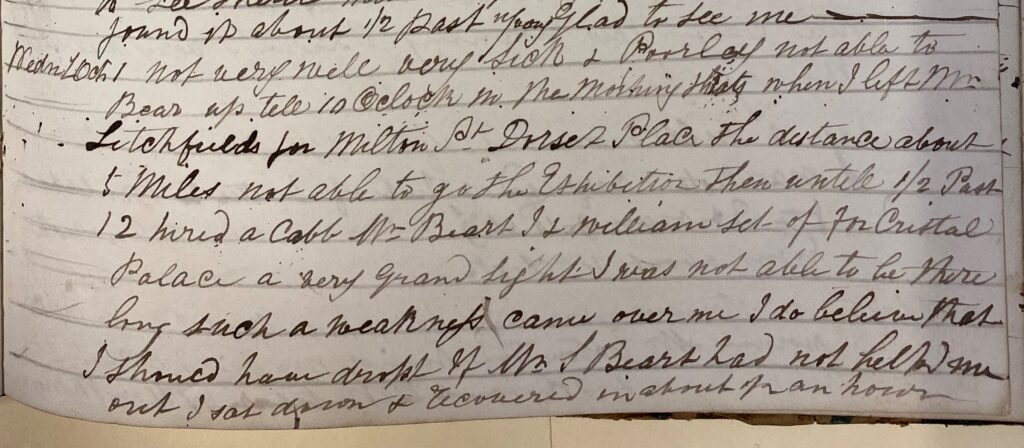 to see
found it about 1/2 past Glad to see me
Wedn 1 Oct not very well very Sick & Poorley not able to
Bear up tell 10 Oclock in the Morning thats when I left Mr
Litchfields for Milton St Dorset Place the distance about
5 Miles not able to go the Exhibition then untell 1/2 Past
12 hired a Cabb Mr Beart I & William set of for Cristal
Palace a very Grand Sight I was not able to be there
long such a weakness came over me I do believe that
I should have dropt if Mr S Beart had not helpd me
out I sat down & recovered in about an hour